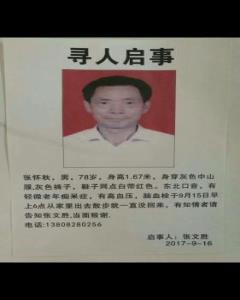 寻人启事
张怀秋，男，78岁，身高1.67米，身穿灰色中山
服，灰色裤子，鞋子网点白带红色，东北口音，有
轻微老年痴呆症，有高血压，脑血栓于9月15日早
上6点从家里出去散步就一直没回来，有知情者请
告知张文胜，当面酬谢。
电话:13808280256
启事人：张文胜
2017-9-16